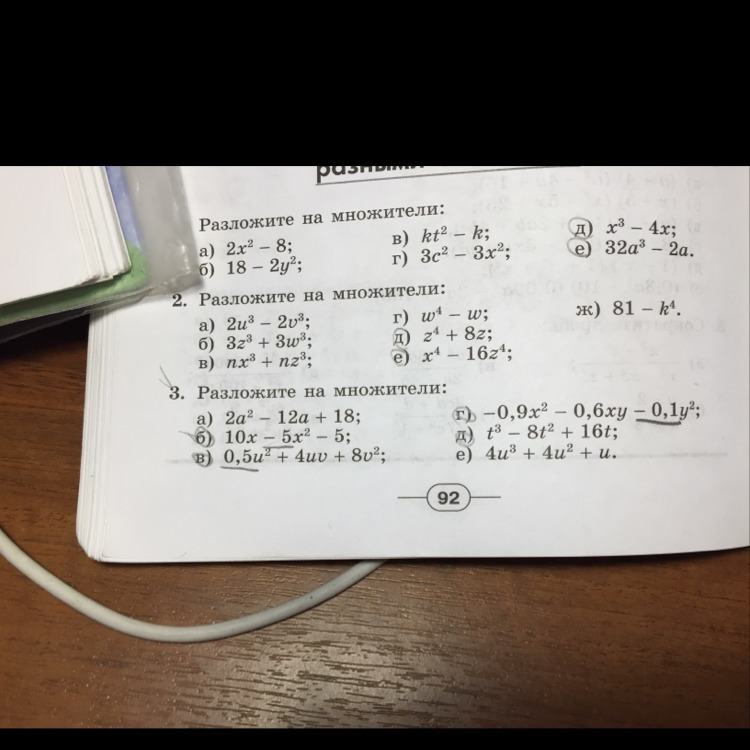 разными
Разложите на множители:
а) 2x² – 8;
б) 18 – 2y²;
в) kt² – k;
г) 3c² – 3x²;
д) x³ – 4x;
е) 32a³ – 2a.
2. Разложите на множители:
а) 2u³ – 2v³;
б) 3z³ + 3w³;
в) nx³ + nz³;
г) w⁴ – w;
д) z⁴ + 8z;
е) x⁴ – 16z⁴;
ж) 81 – k⁴.
3. Разложите на множители:
а) 2a² – 12a + 18;
б) 10x – 5x² – 5;
в) 0,5u² + 4uv + 8v²;
г) –0,9x² – 0,6xy – 0,1y²;
д) t³ – 8t² + 16t;
е) 4u³ + 4u² + u.
92